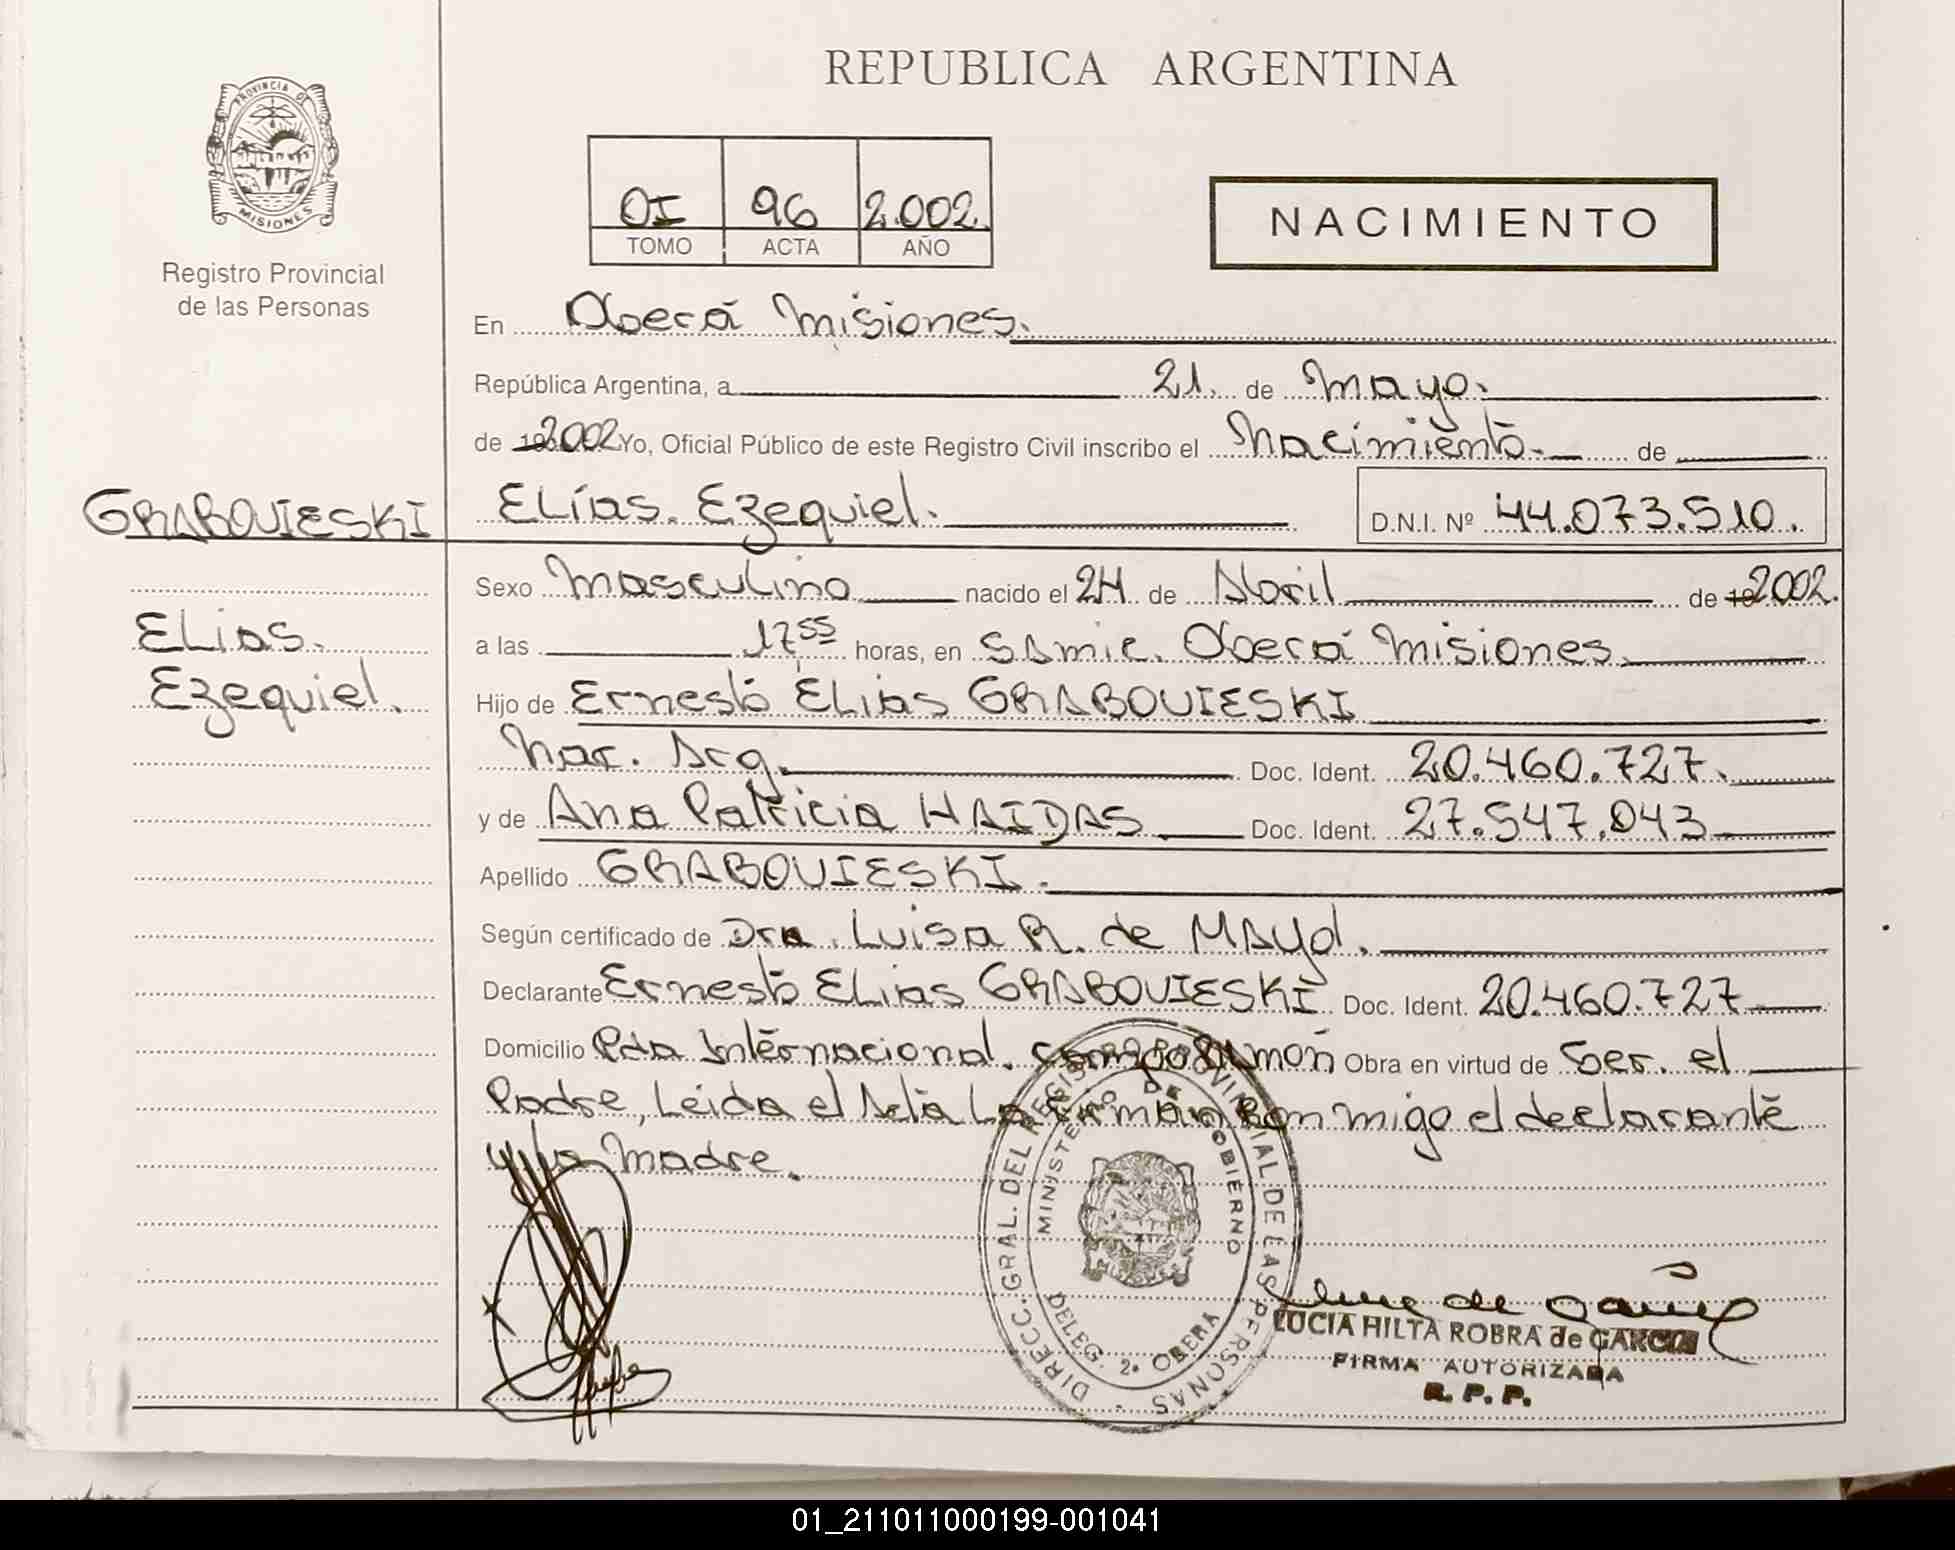 REPUBLICA ARGENTINA
PROVINCIA DE MISIONES
Registro Provincial
de las Personas
OI 96 2.002.
TOMO ACTA AÑO
NACIMIENTO
En Oberá Misiones.
República Argentina, a 21. de Mayo.
de 2002 Yo, Oficial Público de este Registro Civil inscribo el Nacimiento. de
GRABOVIESKI Elías. Ezequiel. D.N.I. Nº 44.073.510.
Sexo Masculino nacido el 24 de Abril de 2002.
Elias.
a las 17 55 horas, en SAmic. Oberá Misiones.
Ezequiel.
Hijo de Ernesto Elias GRABOVIESKI
Nac. Arg. Doc. Ident. 20.460.727.
y de Ana Patricia HAIDAS Doc. Ident. 27.547.043
Apellido GRABOVIESKI.
Según certificado de Dra. Luisa R. de MAyol.
Declarante Ernesto Elias GRABOVIESKI Doc. Ident. 20.460.727
Domicilio Pda Internacional. Campo Ramón Obra en virtud de Ser. el
Padre, Leida el Acta La Firman Conmigo el declarante
y la Madre.
DIRECC. GRAL. DEL REGISTRO PROVINCIAL DE LAS PERSONAS
MINISTERIO DE GOBIERNO
DELEG. 2ª OBERÁ
LUCIA HILTA ROBRA de GARCIA
FIRMA AUTORIZADA
R. P. P.
01_211011000199-001041